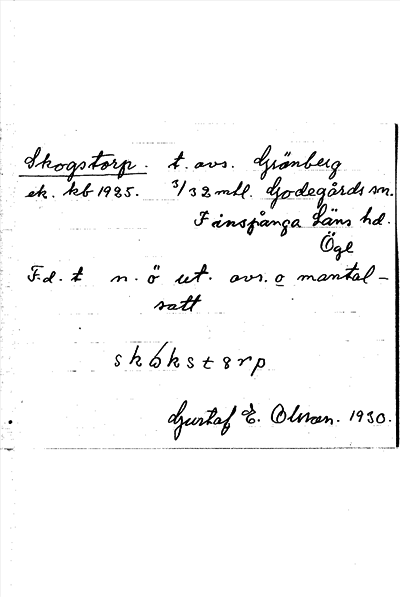 Skogstorp. t. avs. Grönberg
ek. kb 1925. 3/32 mtl. Godegårds sn.
Finspånga Läns hd.
Ögl
F.d. t n. ö ut. avs. o mantal-
satt
Gustaf E. Olsson. 1930.